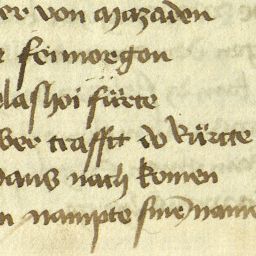 er von mazaden
r feimorgon
lashoi fürte
ber traffit do kürtte
dans nach komen
n nampte sinen name